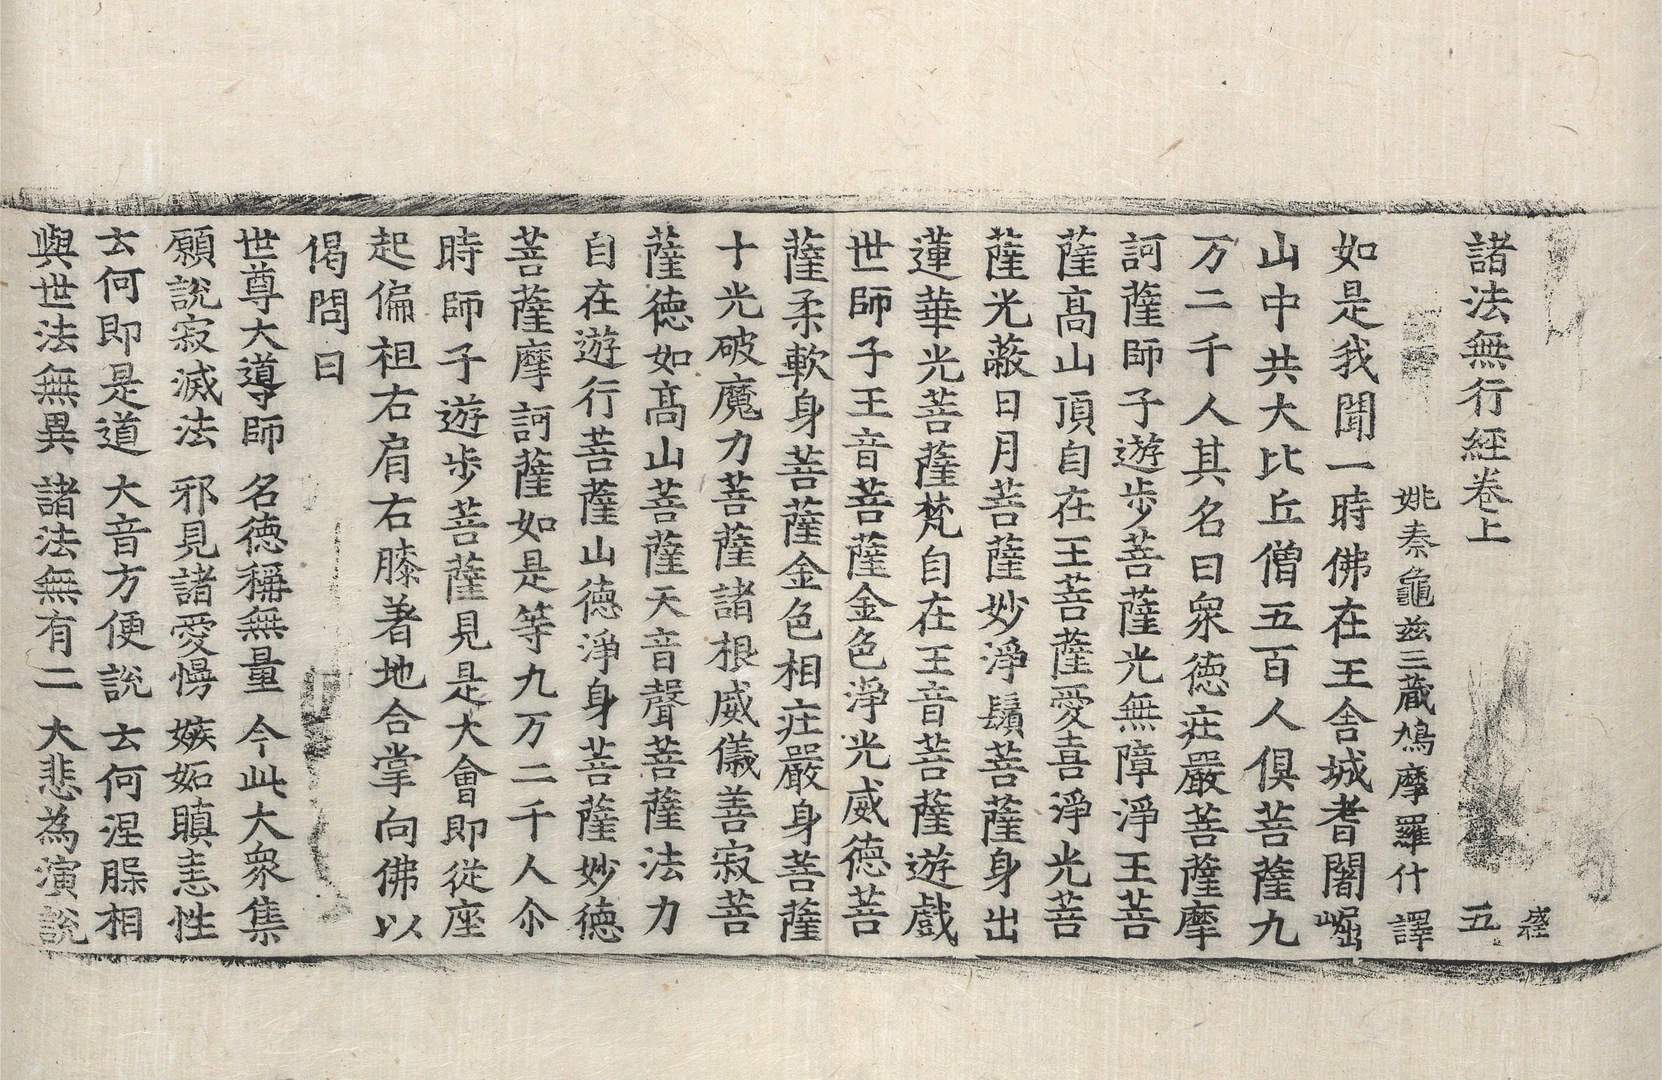 諸法無行經卷上 五
姚秦龜兹三藏鳩摩羅什 譯
如是我聞一時佛在王舍城耆闍崛
山中共大比丘僧五百人俱菩薩九
万二千人其名曰衆德疘嚴菩薩摩
訶薩師子遊步菩薩光無障淨王菩
薩髙山頂自在王菩薩愛喜淨光菩
薩光蔽日月菩薩妙淨鬚菩薩身出
蓮華光菩薩梵自在王音菩薩遊戲
世師子王音菩薩金色淨光威德菩
薩柔軟身菩薩金色相疘嚴身菩薩
十光破魔力菩薩諸根威儀善寂菩
薩德如髙山菩薩天音聲菩薩法力
自在遊行菩薩山德淨身菩薩妙德
菩薩摩訶薩如是等九万二千人尒
時師子遊步菩薩見是大會即從座
起偏袒右肩右膝著地合掌向佛以
偈問曰
世尊大導師 名德稱無量 今此大衆集
願說寂滅法 邪見諸愛慢 嫉妬瞋恚性
云何即是道 大音方便說 云何涅槃相
與世法無異 諸法無有二 大悲為演說